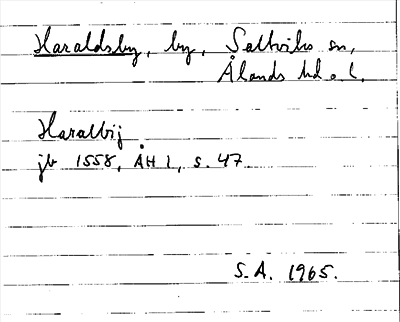 Haraldsby, by, Saltviks sn,
Ålands hd o. l.
Haralbij
jb 1558, ÅH 1, s. 47
S.A. 1965.